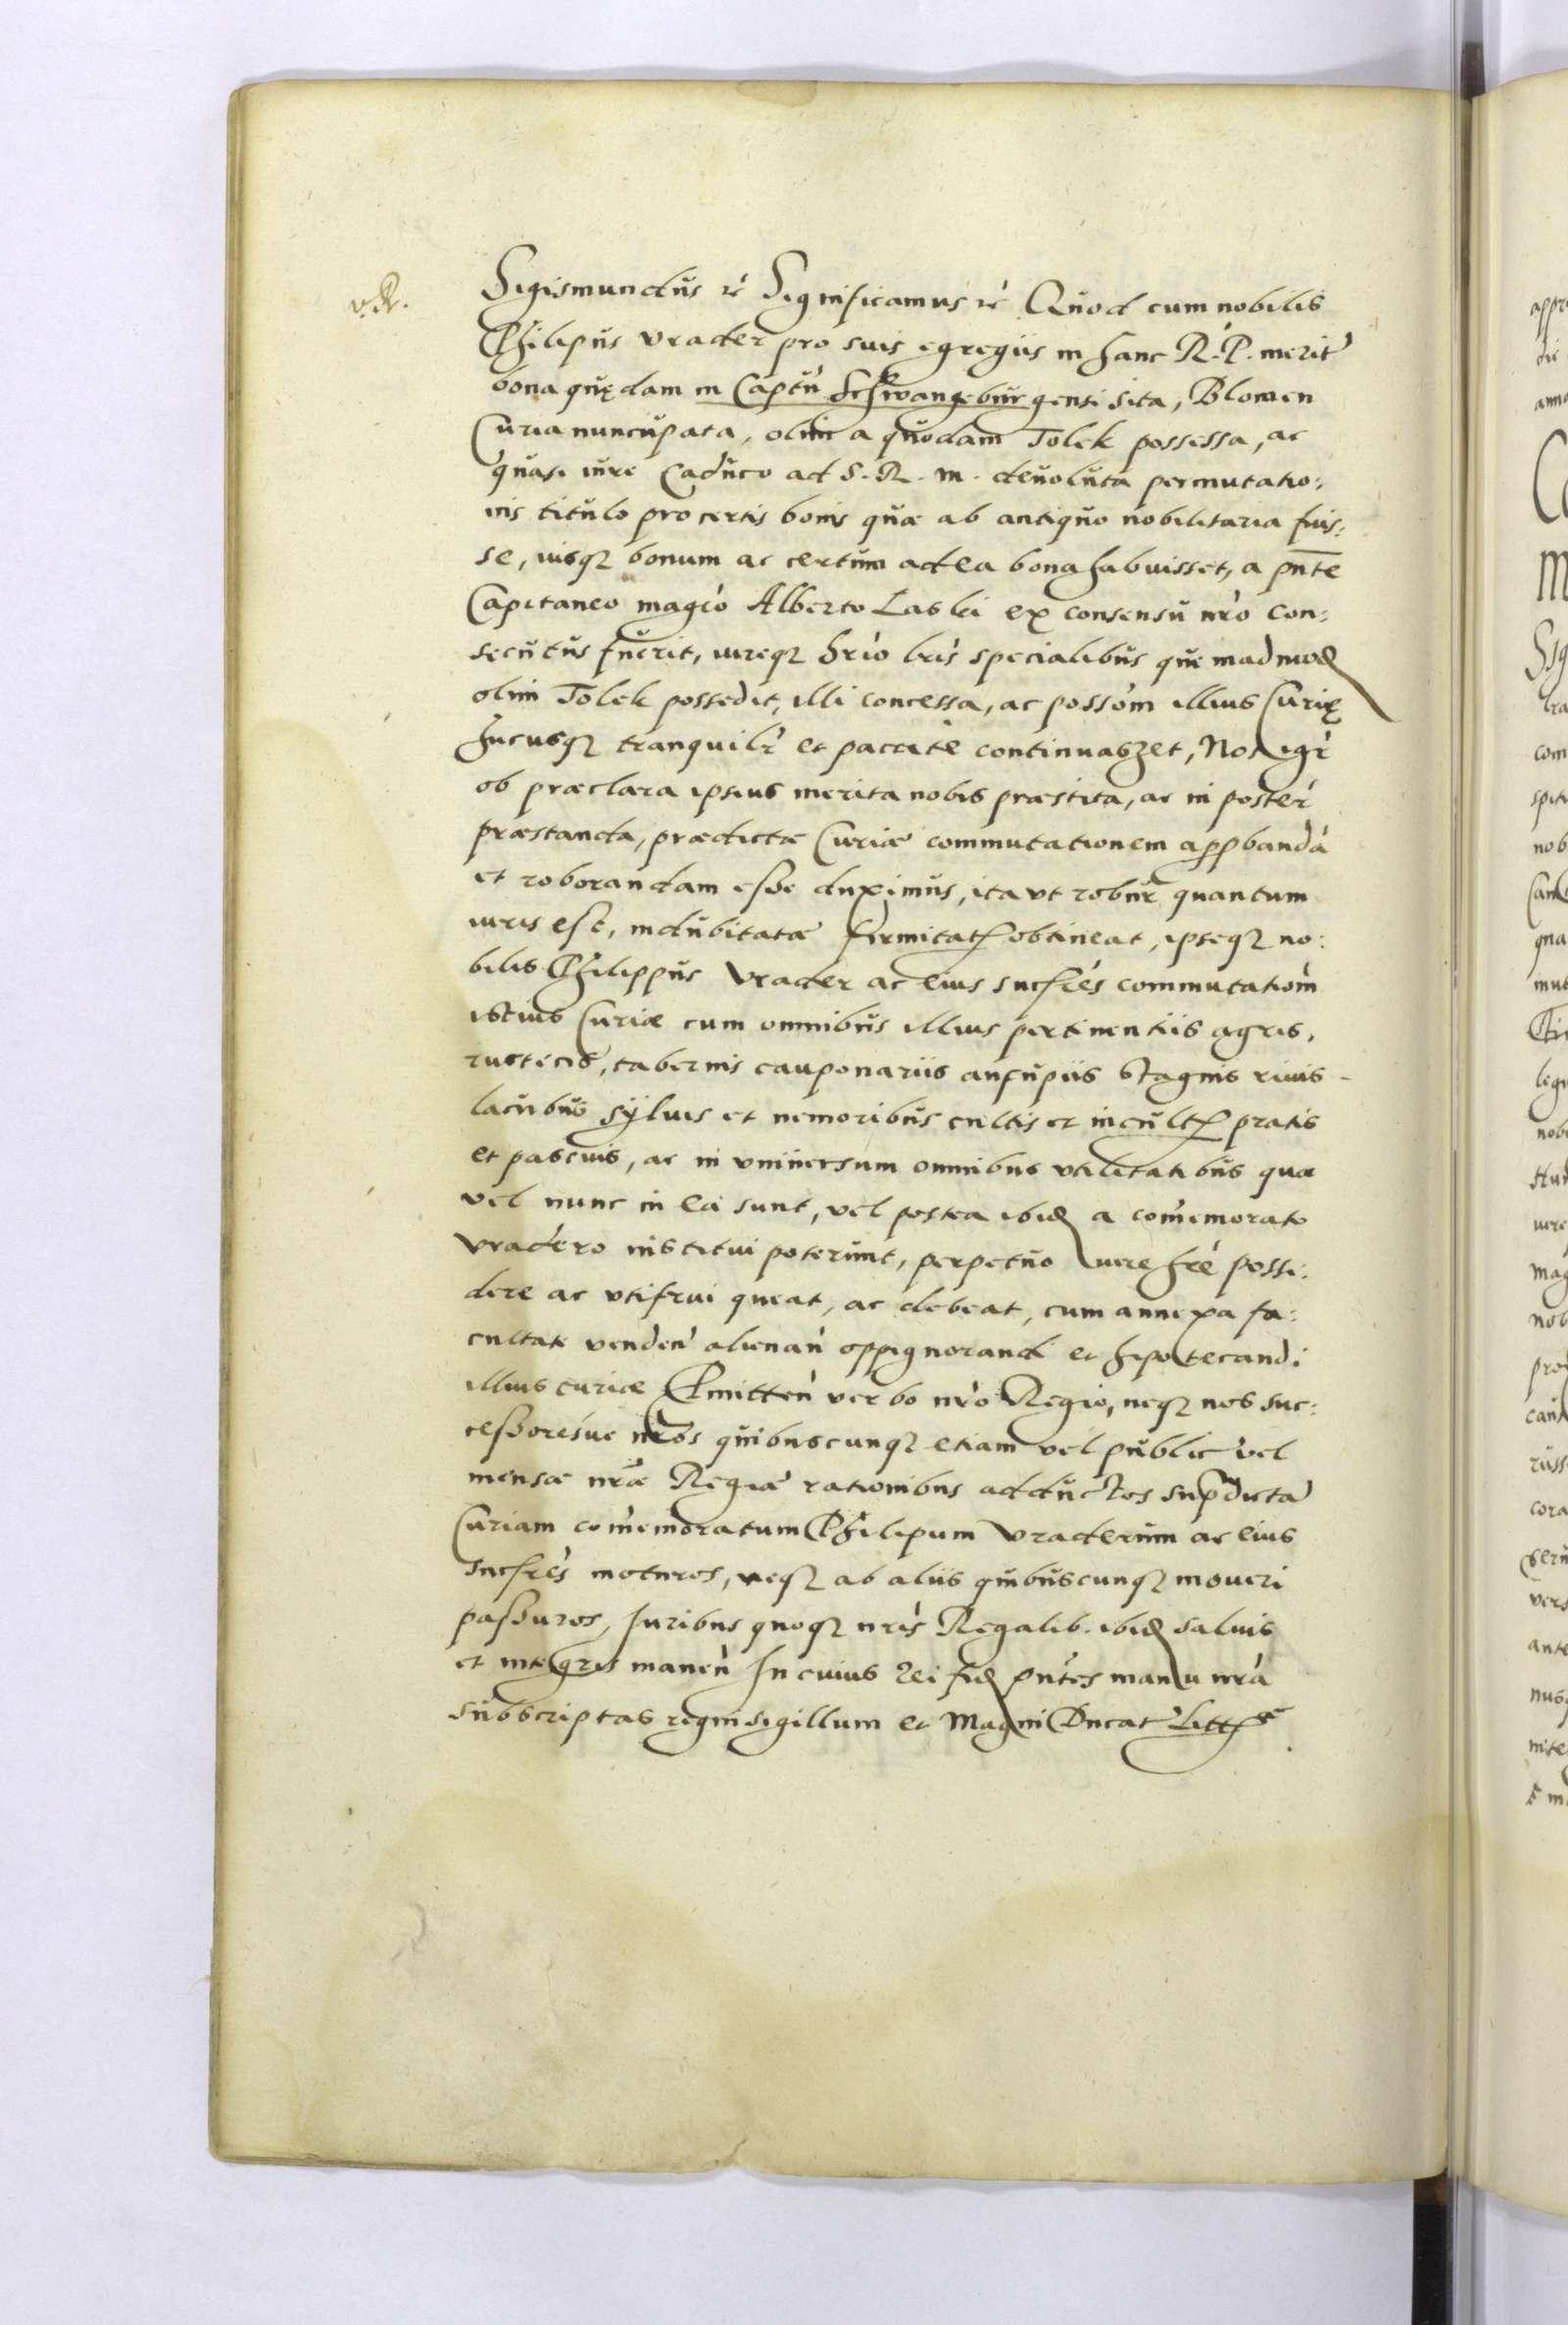 v. R.
Sigismundus rc̃ Significamus rc̃ Quod cum nobilis
Philipus Vrader pro suis egregiis in hanc R. P. merit̃
bona quędam in Captũ Schwangeburgensi sita, Blomen
Curia nuncupata, olim a quodam Tolck possessa, ac
quasi iure Caduco ad S. R. M. deuoluta permutatio:
nis titulo pro certis bonis quæ ab antiquo nobilitaria fuis:
se, iusq bonum ac certum ad ea bona habuisset, a pñte
Capitaneo magĩo Alberto Laski ex consensu nr̃o con:
secutus fuerit, iureq hrĩo lr̃is specialibus quemadmod
olim Tolck possedit, illi concessa, ac possõm illius Curię
hucusq tranquilr̃ et paccate continuasset, Nos igr̃
ob præclara ipsius merita nobis præstita, ac in poster̃
præstanda, prædictæ Curiæ commutationem appbandã
et roborandam esse duximus, ita vt robur quantum
iuris est, indubitatæ firmitat obtineat, ipseq no:
bilis Philippus Vrader ac eius sucsres commutatiom̃
istius Curiæ cum omnibus illius pertinentiis agris,
rusticis, tabernis cauponariis aucupiis stagnis riuis
lacubus syluis et nemoribus cultis et incult pratis
et pascuis, ac in vniuersum omnibus vtilitatibus quæ
vel nunc in ea sunt, vel postea ibid a com̃emorato
Vradero institui poterunt, perpetuo iure hrẽ possi:
dere ac vtifrui queat, ac debeat, cum annexa fa:
cultate venden̄ alienan̄ oppignorandi et hipotecandi
illius curiæ Pmitten̄ verbo nr̃o Regio, neq nos suc:
cessoresue nr̃os quibuscunq etiam vel public̃ vel
mensæ nr̃æ Regiæ rationibus adductos supdictã
Curiam com̃emoratum Philipum Vraderum ac eius
sucsres moturos, neq ab aliis quibuscunq moueri
passuros, Iuribus quoq nr̃is Regalib. ibid saluis
et integris manen̄ In cuius rei fid pñtes manu nr̃a
subscriptas regni sigillum et Magni Ducat̃ Litt